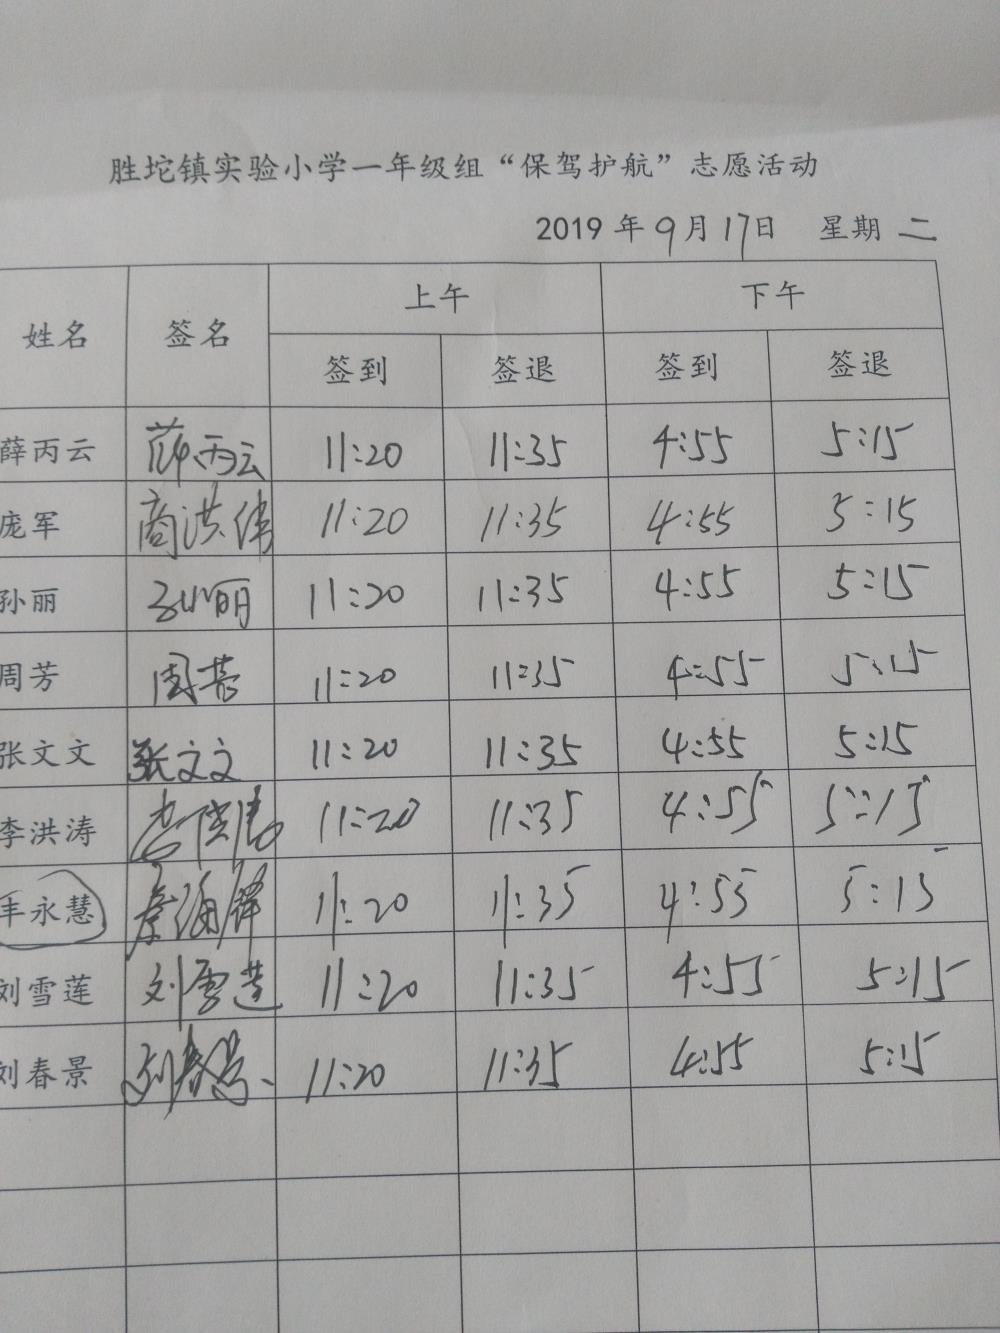 胜坨镇实验小学一年级组“保驾护航”志愿活动
2019年9月17日 星期二
姓名 签名 上午 下午
签到 签退 签到 签退
薛丙云 薛丙云 11:20 11:35 4:55 5:15
庞军 商洪伟 11:20 11:35 4:55 5:15
孙丽 孙丽 11:20 11:35 4:55 5:15
周芳 周芳 11:20 11:35 4:55 5:15
张文文 张文文 11:20 11:35 4:55 5:15
李洪涛 李洪涛 11:20 11:35 4:55 5:15
丰永慧 11:20 11:35 4:55 5:15
刘雪莲 刘雪莲 11:20 11:35 4:55 5:15
刘春景 刘春景 11:20 11:35 4:55 5:15